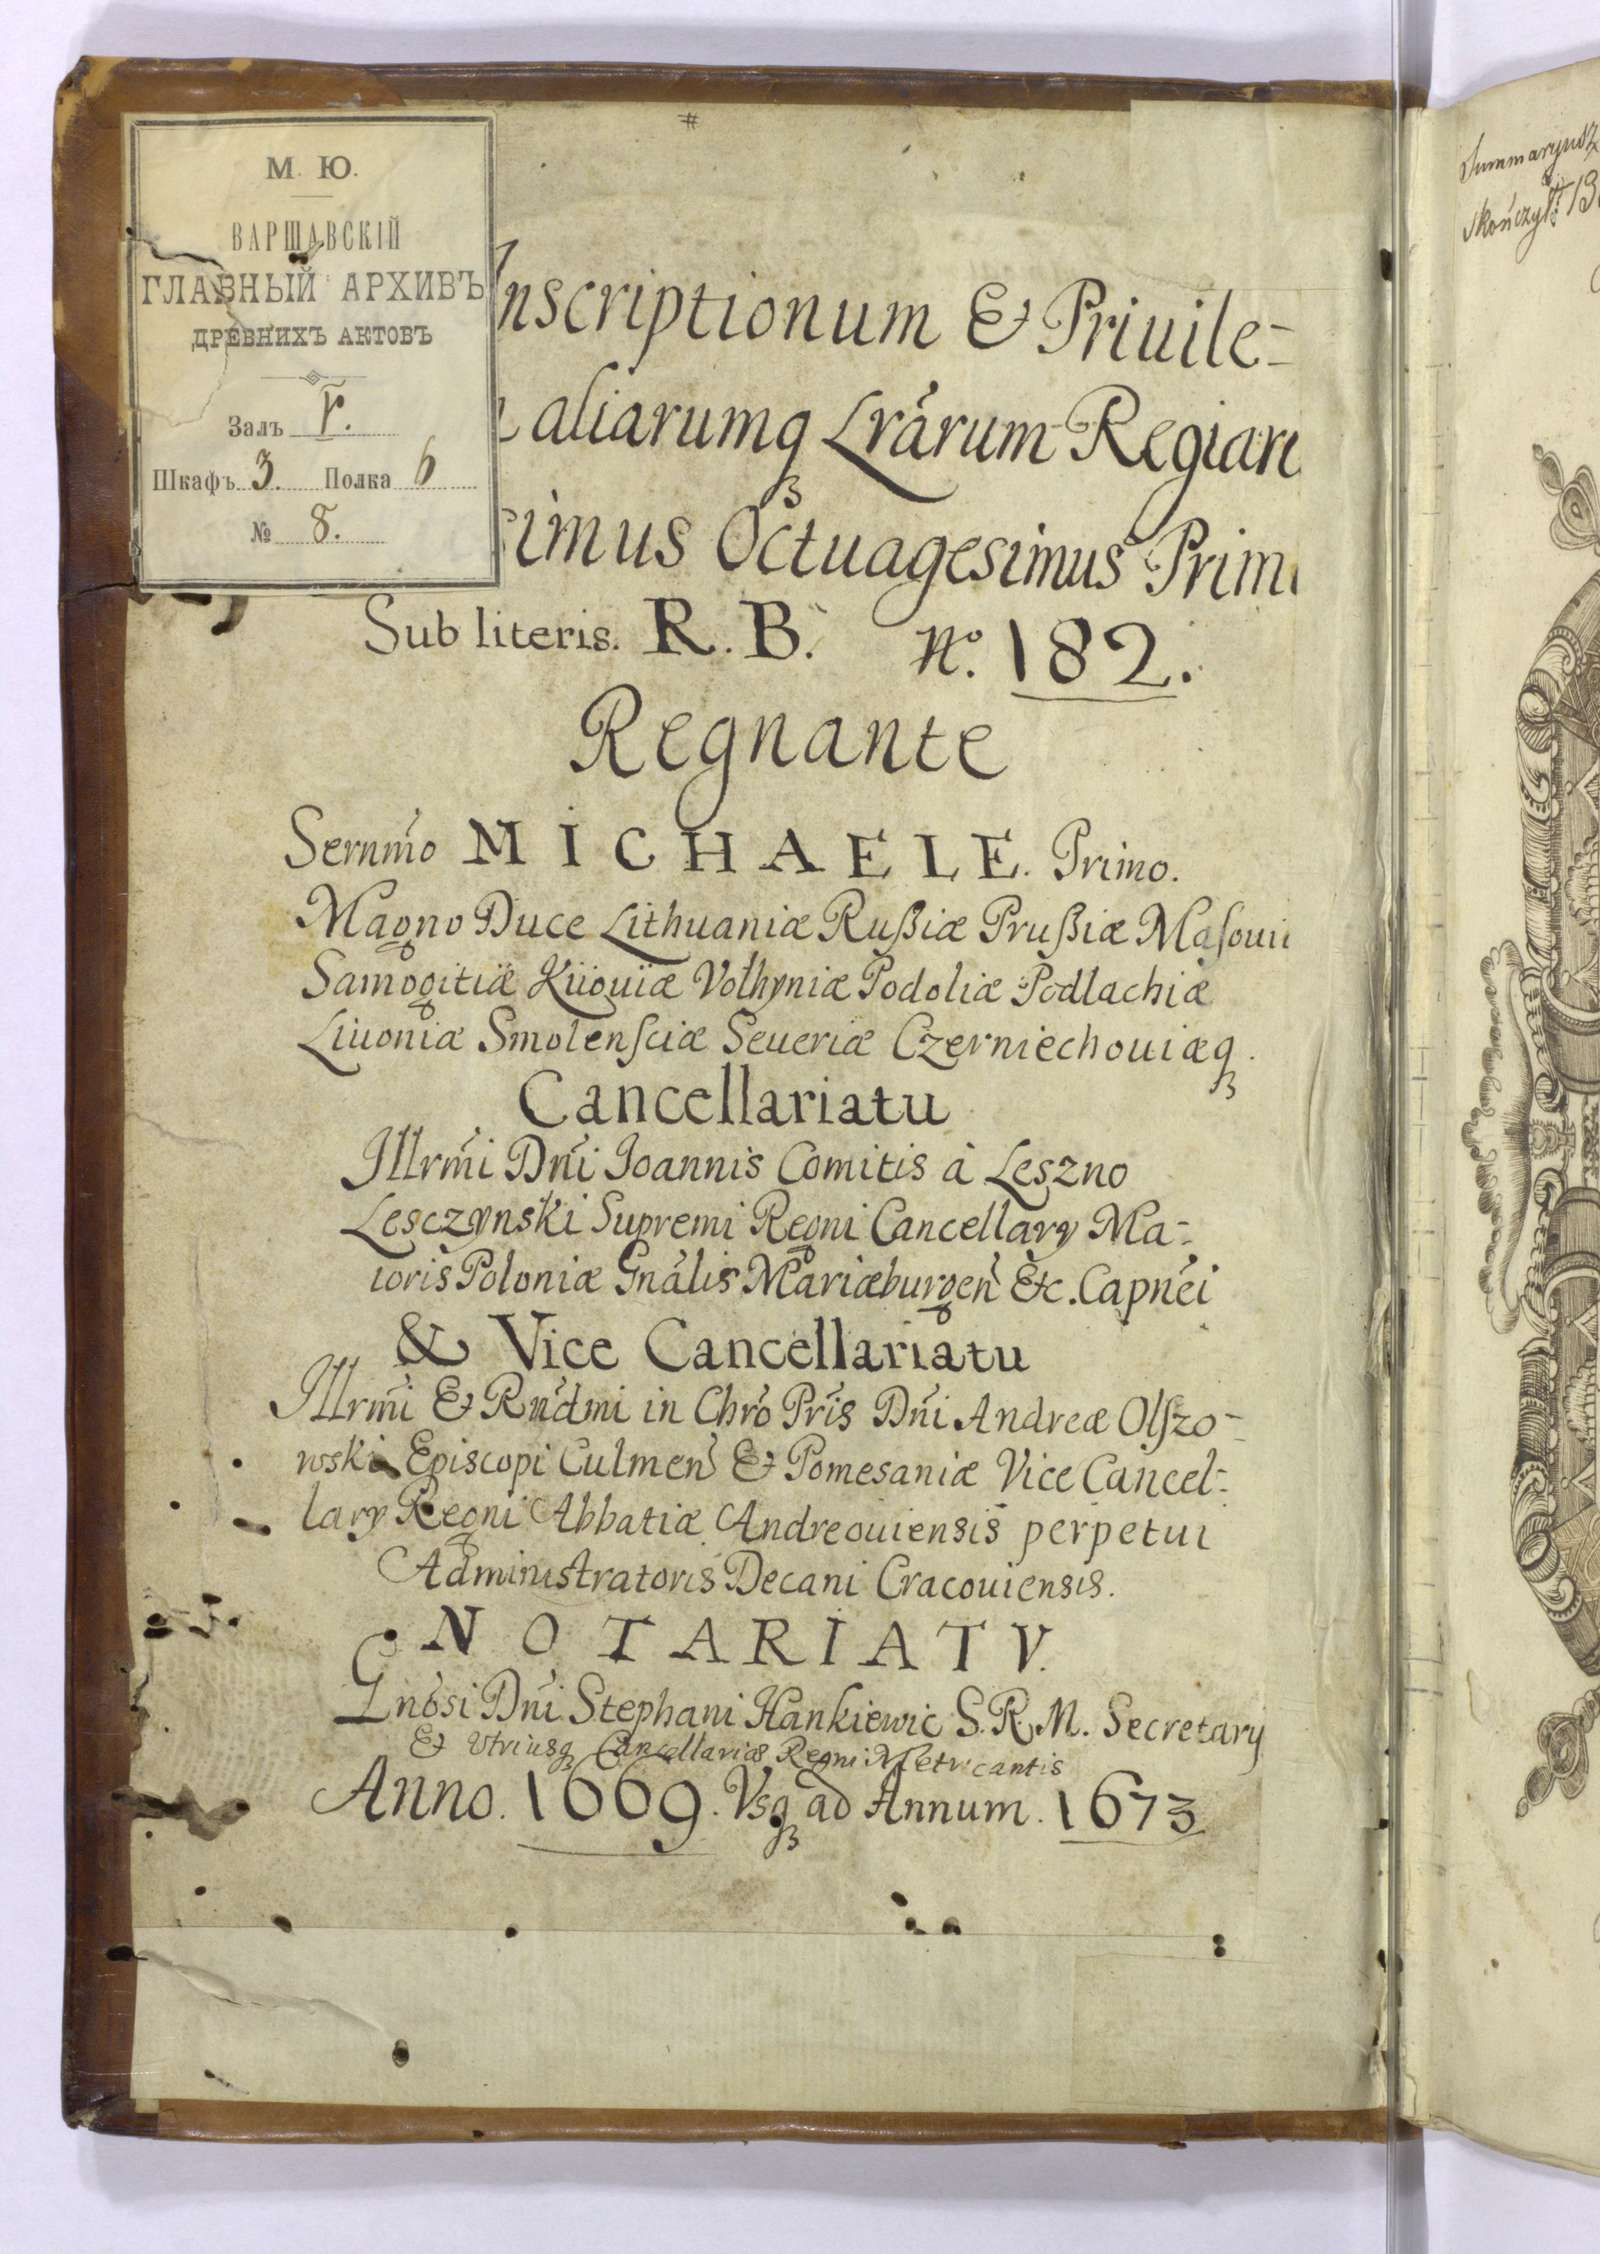 #
М. Ю.
ВАРШАВСКІЙ
ГЛАВНЫЙ АРХИВЪ
ДРЕВНИХЪ АКТОВЪ
Залъ
Шкафъ 3. Полка 6
№ 8.
Inscriptionum & Priuile-
aliarumq Lrárum Regiaru
simus Octuagesimus Primu
Sub literis. R. B. No. 182.
Regnante
Sernmó MICHAELE. Primo.
Magno Duce Lithuaniæ Rußiæ Prußiæ Masouii
Samogitiæ Kiiouiæ Volhyniæ Podoliæ Podlachiæ
Liuoniæ Smolensciæ Seueriæ Czerniechouiæq.
Cancellariatu
Illrmí Dní Ioannis Comitis á Leszno
Lesczynski Supremi Regni Cancellary Ma-
ioris Poloniæ Gnális Mariæburgen Etc. Capnéi
& Vice Cancellariatu
Illrmí & Rndmi in Chró Prís Dní Andreæ Olszo-
wski Episcopi Culmen & Pomesaniæ Vice Cancel-
lary Regni Abbatiæ Andreouiensis perpetui
Administratoris Decani Cracouiensis.
NOTARIATV.
Gnósi Dní Stephani Hankiewic S. R. M. Secretary
& Vtriusq Cancellariæ Regni Metricantis
Anno. 1669. Vsq ad Annum. 1673
Summaryusz
skończył